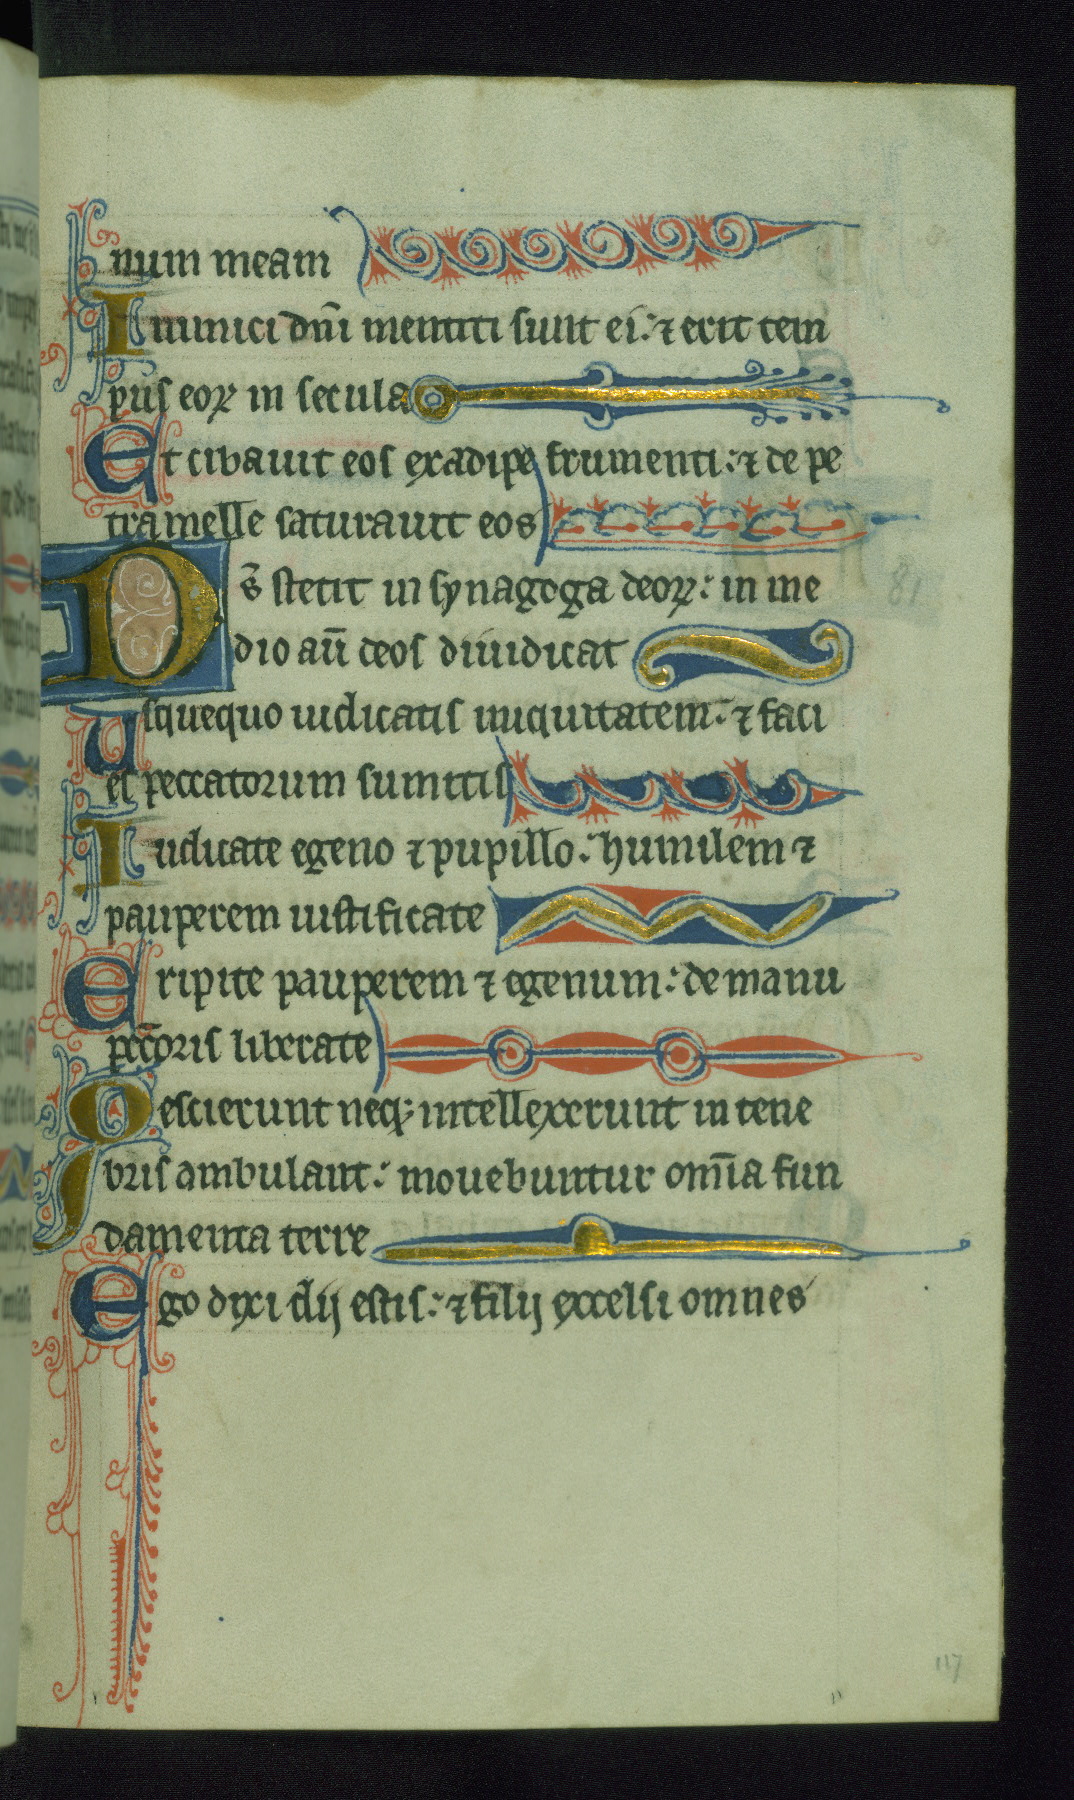 num meam
Inimici dn̄i mentiti sunt ei: ⁊ erit tem
pus eoꝝ in secula
Et cibauit eos ex adipe frumenti: ⁊ de pe
tra melle saturauit eos
Ds̄ stetit in synagoga deoꝝ: in me
dio aū deos diiudicat
Usquequo iudicatis iniquitatem: ⁊ faci
es peccatorum sumitis
Iudicate egeno ⁊ pupillo: humilem ⁊
pauperem iustificate
Eripite pauperem ⁊ egenum: de manu
pecc̄oris liberate
Nescierunt neqꝫ intellexerunt in tene
bris ambulant: mouebuntur om̄ia fun
damenta terre
Ego dixi dij estis: ⁊ filij excelsi omnes
81
117